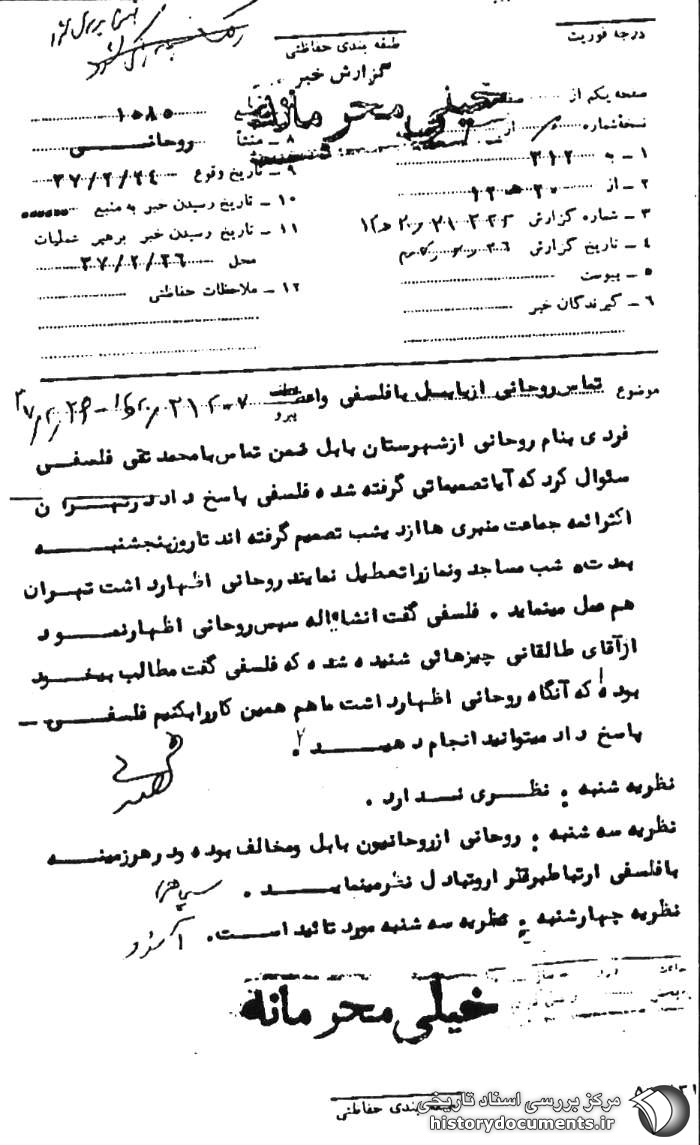 درجه فوریت
طبقه بندی حفاظتی
گزارش خبر
خیلی محرمانه
صفحه یکم از
نسخه شماره از
۱ ـ به ۳۱۲
۲ ـ از ۲۰ ھ ۱۲
۳ ـ شماره گزارش
۴ ـ تاریخ گزارش
۵ ـ پیوست
۶ ـ گیرندگان خبر
۱۰۸۵
۸ ـ منشأ روحانی
۹ ـ تاریخ وقوع ۳۷/۲/۲۴
۱۰ ـ تاریخ رسیدن خبر به منبع
۱۱ ـ تاریخ رسیدن خبر برهبر عملیات
محل ۳۷/۲/۲۶
۱۲ ـ ملاحظات حفاظتی
موضوع تماس روحانی ازبابل بافلسفی واعظ
پیرو
فردی بنام روحانی ازشهرستان بابل ضمن تماس با محمد تقی فلسفی
سئوال کرد که آیا تصمیماتی گرفته شده فلسفی پاسخ داد درتهران
اکثر ائمه جماعت منبری ها ازدیشب تصمیم گرفته اند تاروزپنجشنبه
بمدت شب مساجد ونماز راتعطیل نمایند روحانی اظهارداشت تهران
هم عمل مینماید . فلسفی گفت انشااله سپس روحانی اظهارنمود
ازآقای طالقانی چیزهائی شنیده شده که فلسفی گفت مطالب بیخود
بوده که آنگاه روحانی اظهارداشت ماهم همین کاررابکنیم فلسفی ـ
پاسخ داد میتوانید انجام دهید .
نظریه شنبه : نظری ندارد .
نظریه سه شنبه : روحانی ازروحانیون بابل ومخالف بوده ودرهرزمینه
بافلسفی ارتباط برقرار وتبادل نظرمینماید .
نظریه چهارشنبه : نظریه سه شنبه مورد تائید است .
خیلی محرمانه
طبقه بندی حفاظتی
مرکز بررسی اسناد تاریخی
historydocuments.ir